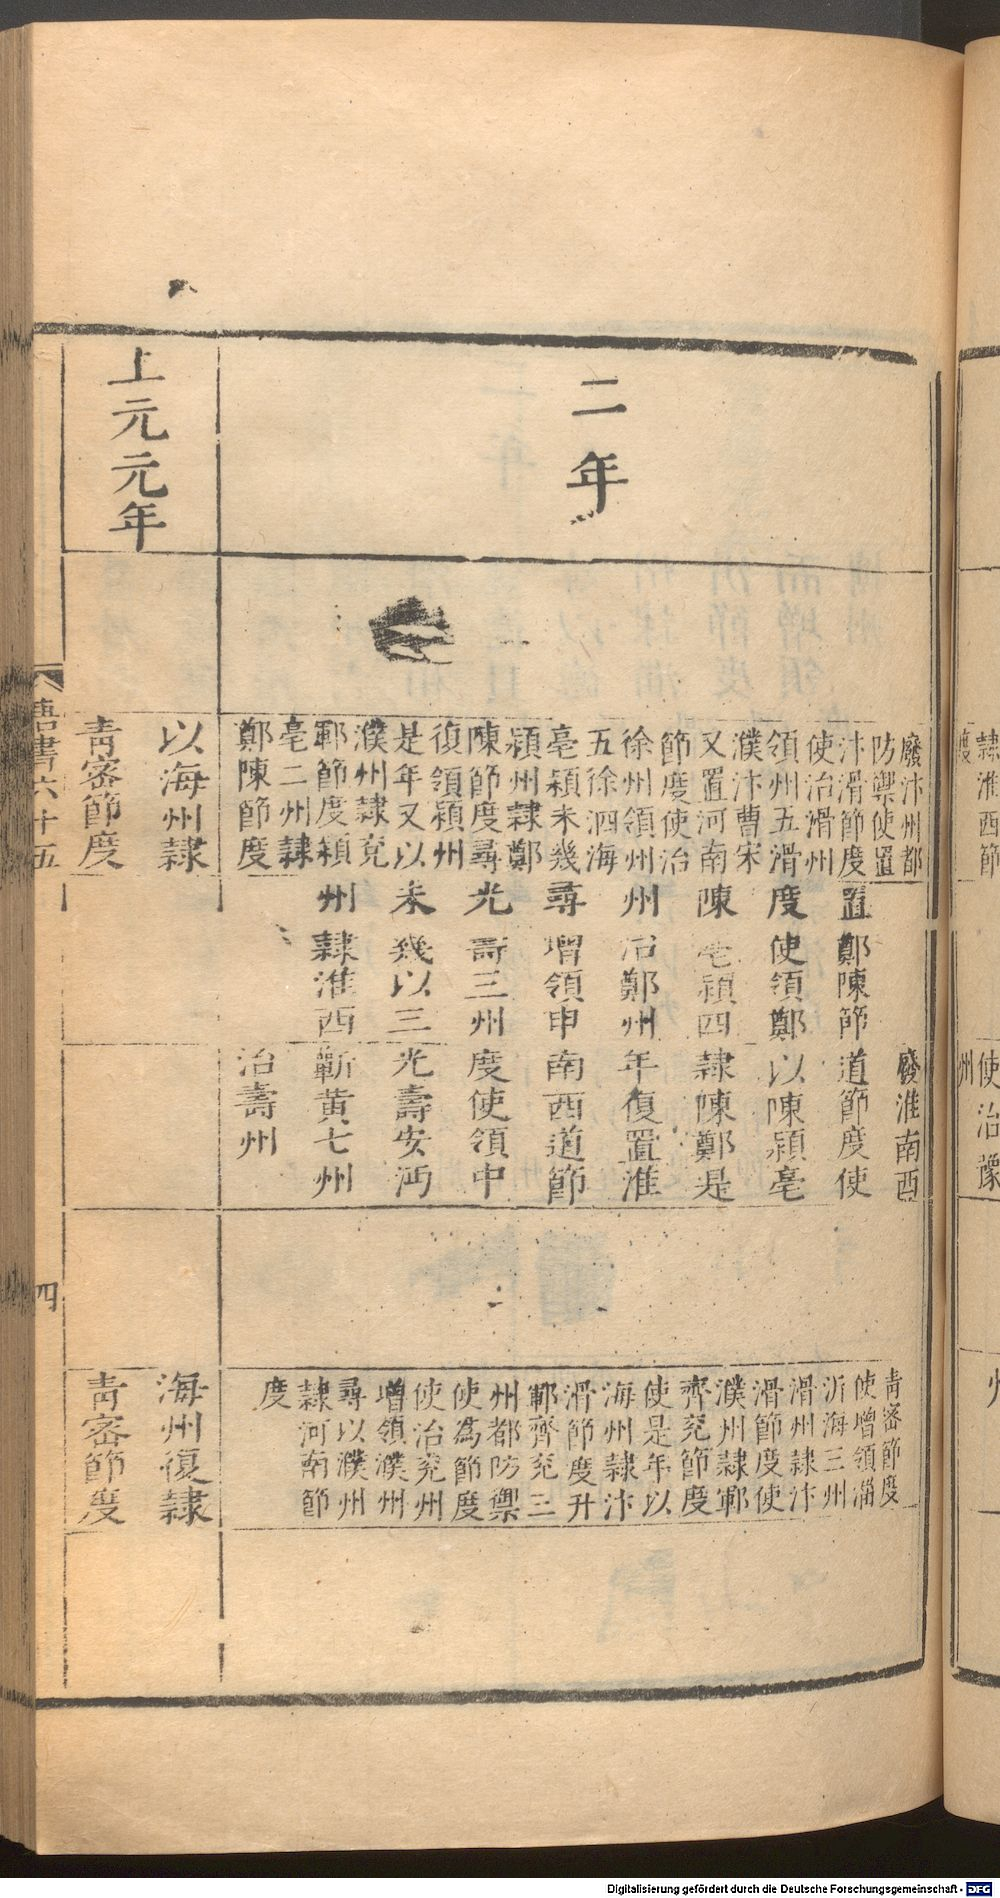 二年
廢汴州都
防禦使置
汴滑節度
使治滑州
領州五滑
濮汴曹宋
又置河南
節度使治
徐州領州
五徐泗海
亳潁未幾
潁州隸鄭
陳節度尋
復領潁州
是年又以
濮州隸兗
鄆節度潁
亳二州隸
鄭陳節度
置鄭陳節
度使領鄭
陳亳潁四
州治鄭州
尋增領申
光壽三州
未幾以三
州隸淮西
廢淮南西
道節度使
以陳潁亳
隸陳鄭是
年復置淮
南西道節
度使領申
光壽安沔
蘄黃七州
治壽州
青密節度
使增領淄
沂海三州
滑州隸汴
滑節度使
濮州隸鄆
齊兗節度
使是年以
海州隸汴
滑節度升
鄆齊兗三
州都防禦
使為節度
使治兗州
增領濮州
尋以濮州
隸河南節
度
上元元年
以海州隸
青密節度
海州復隸
青密節度
唐書六十五
四
隸淮西節
度
使治豫
州
Digitalisierung gefördert durch die Deutsche Forschungsgemeinschaft - DFG